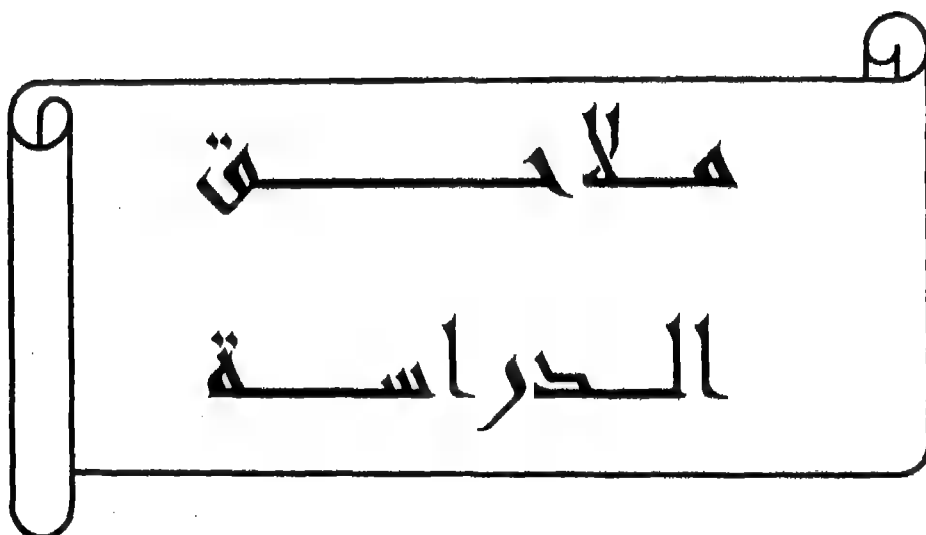 ملاحق
الدراسة